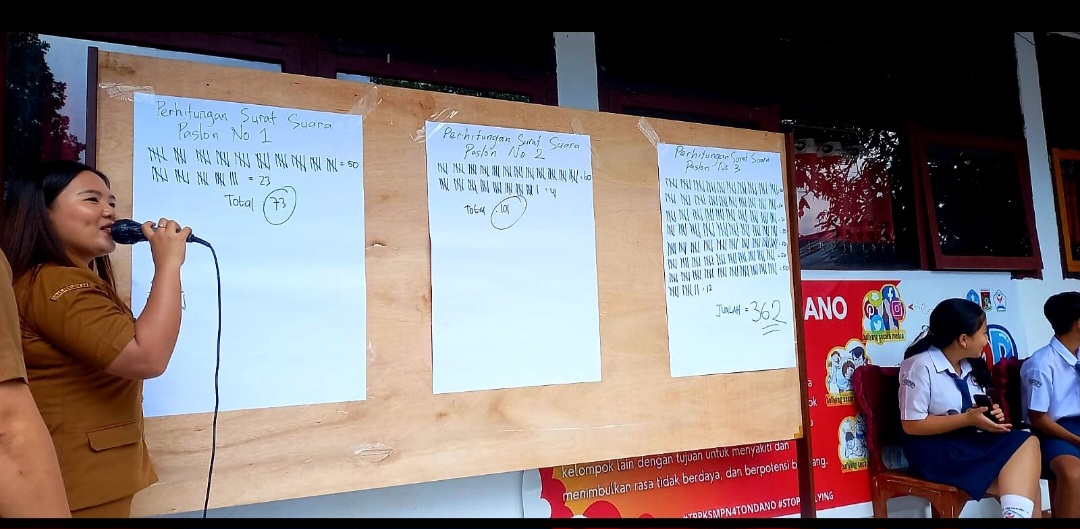 Perhitungan Surat Suara
Paslon No 1
= 50
= 23
Total 73
Perhitungan Surat Suara
Paslon No 2
= 60
= 41
Total 101
Perhitungan Surat Suara
Paslon No 3
= 12
JUMLAH = 362
ANO
bullying secara verbal
kelompok lain dengan tujuan untuk menyakiti dan
menimbulkan rasa tidak berdaya, dan berpotensi
#TPPKSMPN4TONDANO #STOP
LYING